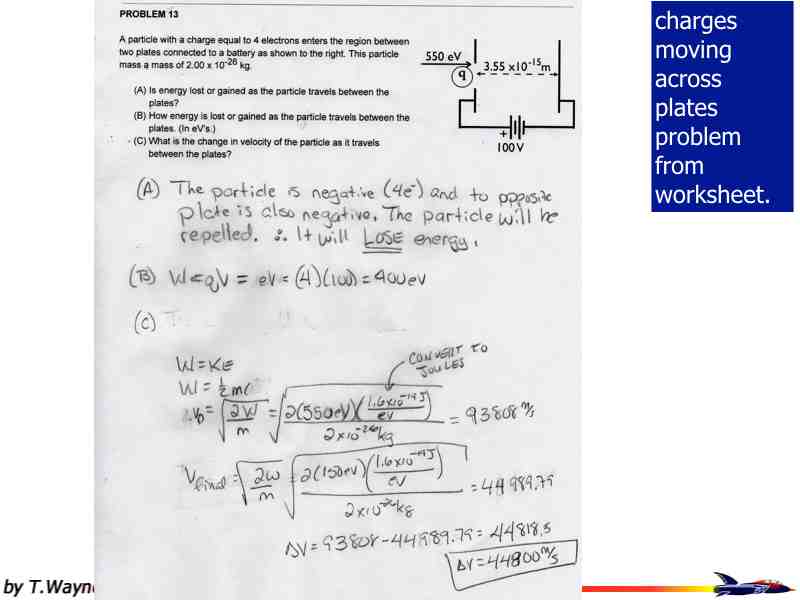 PROBLEM 13
A particle with a charge equal to 4 electrons enters the region between
two plates connected to a battery as shown to the right. This particle
mass a mass of 2.00 x 10⁻²⁶ kg.
(A) Is energy lost or gained as the particle travels between the
plates?
(B) How energy is lost or gained as the particle travels between the
plates. (In eV's.)
(C) What is the change in velocity of the particle as it travels
between the plates?
550 eV
q
3.55 x10⁻¹⁵m
+
100V
charges
moving
across
plates
problem
from
worksheet.
(A) The particle is negative (4e⁻) and to opposite
plate is also negative. The particle will be
repelled. ∴ It will LOSE energy.
(B) W = qV = eV = (4)(100) = 400eV
(C)
CONVERT TO
JOULES
W = KE
W = ½m
= √(2W/m) = √(2(550eV)(1.6x10⁻¹⁹J/eV)/2x10⁻²⁶kg) = 93808 m/s
Vfinal = √(2W/m) = √(2(150eV)(1.6x10⁻¹⁹J/eV)/2x10⁻²⁶kg) = 44989.79
ΔV = 93808 - 44989.79 = 44818.5
ΔV = 44800 m/s
by T.Wayne